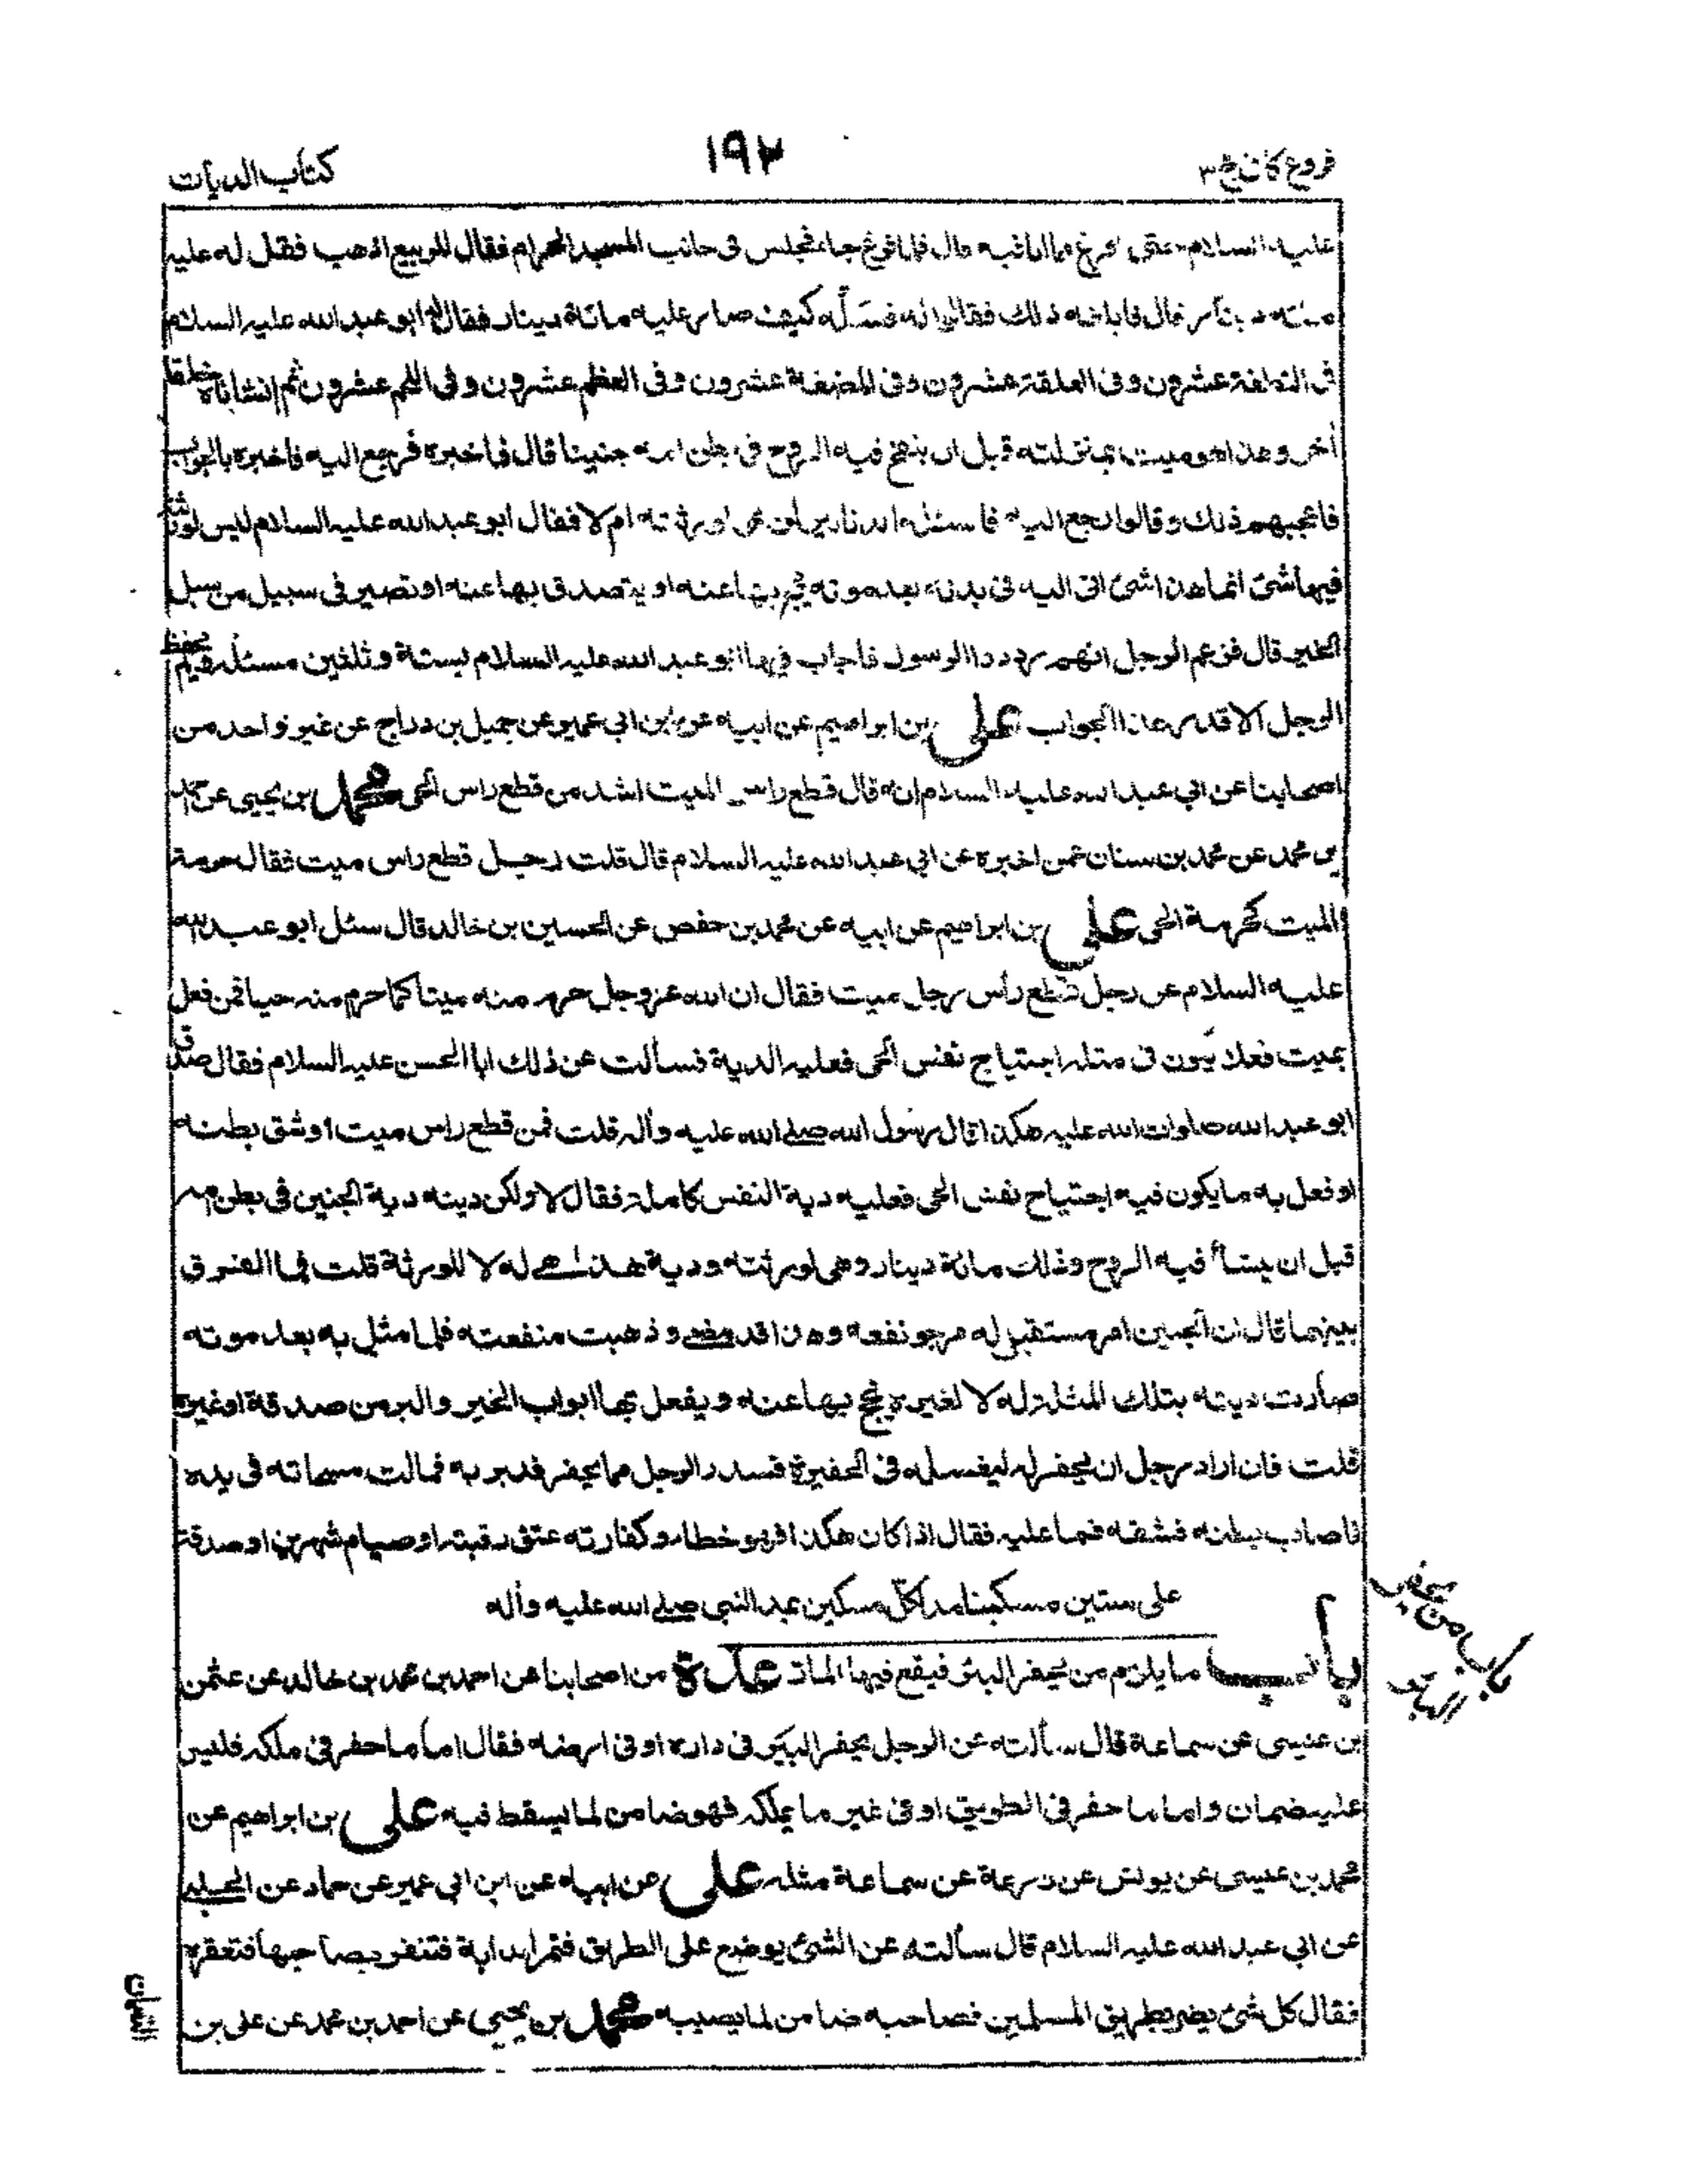 فروع كافي ج ٣
١٩٢
كتاب الديات
عليه السلام حتى يفرغ قال فلما فرغ جاء فجلس فى جانب المسجد الحرام فقال للربيع اذهب فقل له عليه
مائة دينار قال فابلغه ذلك فقالوا له فسئله كيف صار عليه مائة دينار فقال ابو عبد الله عليه السلام
فى النطفة عشرون وفى العلقة عشرون وفى المضغة عشرون وفى العظم عشرون وفى اللحم عشرون ثم انشاناه خلقا
اخر وهذا هو ميت بمنزلته قبل ان ينفخ فيه الروح فى بطن امه جنينا قال فاخبره فرجع اليه فاخبره بالجواب
فاعجبهم ذلك وقالوا ارجع اليه فاسئله الدنانير لمن هى لورثته ام لا فقال ابو عبد الله عليه السلام ليس لورثته
فيها شئ انما هذا شئ اتى اليه فى بدنه بعد موته يحج بها عنه او يتصدق بها عنه او تصير فى سبيل من سبل
الخير قال فزعم الرجل انهم ردوا الرسول فاجاب فيها ابو عبد الله عليه السلام بستة وثلثين مسئلة ولم يحفظ
الرجل الا قدر هذا الجواب على بن ابراهيم عن ابيه عن ابن ابي عمير عن جميل بن دراج عن غير واحد من
اصحابنا عن ابي عبد الله عليه السلام انه قال قطع راس الميت اشد من قطع راس الحى محمد بن يحيى عن احمد
بن محمد عن محمد بن سنان عمن اخبره عن ابي عبد الله عليه السلام قال قلت رجل قطع راس ميت فقال حرمة
الميت كحرمة الحى على بن ابراهيم عن ابيه عن محمد بن حفص عن الحسين بن خالد قال سئل ابو عبد الله
عليه السلام عن رجل قطع رأس رجل ميت فقال ان الله عز وجل حرم منه ميتا كما حرم منه حيا فمن فعل
بميت فعلا يكون فى مثله اجتياح نفس الحى فعليه الدية فسألت عن ذلك ابا الحسن عليه السلام فقال صدق
ابو عبد الله صلوات الله عليه هكذا قال رسول الله صلى الله عليه وآله قلت فمن قطع راس ميت او شق بطنه
او فعل به ما يكون فيه اجتياح نفس الحى فعليه دية النفس كاملة فقال لا ولكن ديته دية الجنين فى بطن امه
قبل ان ينشأ فيه الروح وذلك مائة دينار وهى لورثته ودية هذا هى له لا للورثة قلت فما الفرق
بينهما قال ان الجنين امر مستقبل له مرجو نفعه وهذا قد مضى وذهبت منفعته فلما مثل به بعد موته
صارت ديته بتلك المثلة له لا لغيره يحج بها عنه ويفعل بها ابواب الخير والبر من صدقة او غيره
قلت فان اراد رجل ان يحفر له ليغسله فى الحفيرة فسدر الرجل مما يحفر فدير به فمالت مسحاته فى يده
فاصاب بطنه فشقه فما عليه فقال اذا كان هكذا فهو خطاء وكفارته عتق رقبة او صيام شهرين او صدقة
على ستين مسكينا مد لكل مسكين بمد النبى صلى الله عليه وآله
باب ما يلزم من يحفر البئر فيقع فيها المار عدة من اصحابنا عن احمد بن محمد بن خالد عن عثمن
باب من يحفر البئر
بن عيسى عن سماعة قال سألته عن الرجل يحفر البئر فى داره او فى ارضه فقال اما ما حفر فى ملكه فليس
عليه ضمان واما ما حفر فى الطريق او فى غير ما يملكه فهو ضامن لما يسقط فيه على بن ابراهيم عن
محمد بن عيسى عن يونس عن زرعة عن سماعة مثله على عن ابيه عن ابن ابي عمير عن حماد عن الحلبى
عن ابي عبد الله عليه السلام قال سألته عن الشئ يوضع على الطريق فتمر الدابة فتنفر بصاحبها فتعقره
فقال كل شئ يضر بطريق المسلمين فصاحبه ضامن لما يصيبه محمد بن يحيى عن احمد بن محمد عن على بن
النعمان